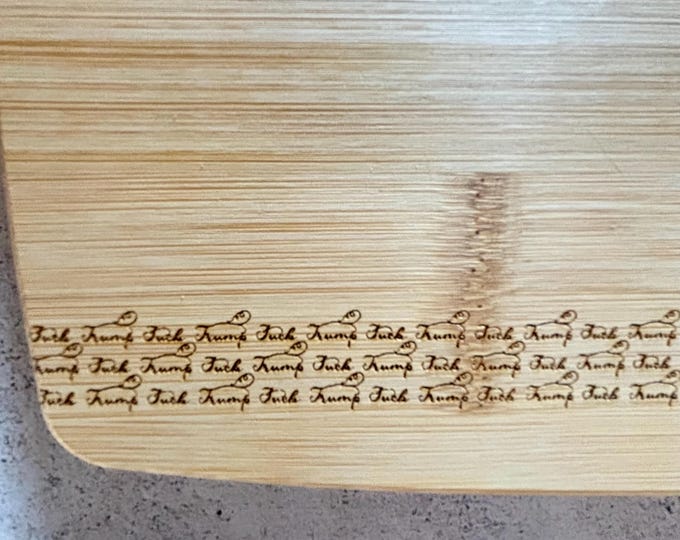 Fuck Trump Fuck Trump Fuck Trump Fuck Trump Fuck Trump Fuck Trump
Trump Fuck Trump Fuck Trump Fuck Trump Fuck Trump Fuck Trump Fuck
Fuck Trump Fuck Trump Fuck Trump Fuck Trump Fuck Trump Fuck Trump